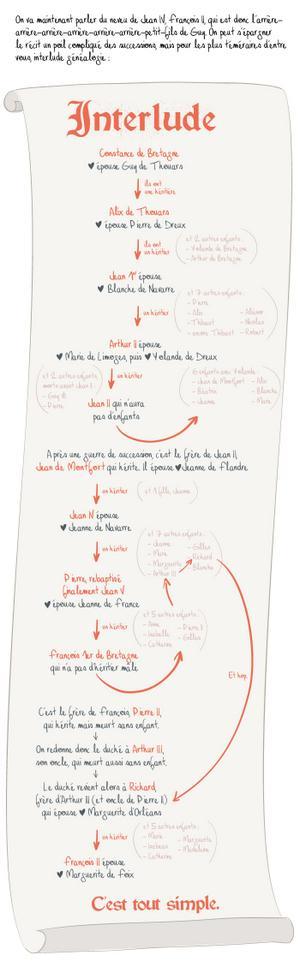 On va maintenant parler du neveu de Jean IV, François II, qui est donc l'arrière-
arrière-arrière-arrière-arrière-petit-fils de Guy. On peut s'épargner
le récit un poil compliqué des successions, mais pour les plus téméraires d'entre
vous, interlude généalogie :
Interlude
Constance de Bretagne
♥ épouse Guy de Thouars
ils ont
une héritière
Alix de Thouars
♥ épouse Pierre de Dreux
ils ont
un héritier
(et 2 autres enfants :
- Yolande de Bretagne
- Arthur de Bretagne)
Jean 1er épouse
♥ Blanche de Navarre
un héritier
(et 7 autres enfants :
- Pierre
- Alix
- Thibaut
- encore Thibaut
- Aliénor
- Nicolas
- Robert)
Arthur II épouse
♥ Marie de Limoges, puis ♥ Yolande de Dreux
(et 2 autres enfants
morts avant Jean :
- Guy
- Pierre)
un héritier
6 enfants avec Yolande :
- Jean de Montfort
- Béatrix
- Jeanne
- Alix
- Blanche
- Marie
Jean II qui n'aura
pas d'enfants
Après une guerre de succession, c'est le frère de Jean II,
Jean de Montfort qui hérite. Il épouse ♥ Jeanne de Flandre
un héritier
(et 1 fille, Jeanne)
Jean IV épouse
♥ Jeanne de Navarre
un héritier
(et 7 autres enfants :
- Jeanne
- Marie
- Marguerite
- Arthur III
- Gilles
- Richard
- Blanche)
Pierre, rebaptisé
finalement Jean V
♥ épouse Jeanne de France
un héritier
(et 5 autres enfants :
- Anne
- Isabelle
- Catherine
- Pierre II
- Gilles)
François 1er de Bretagne
qui n'a pas d'héritier mâle
Et hop.
C'est le frère de François, Pierre II,
qui hérite mais meurt sans enfant.
On redonne donc le duché à Arthur III,
son oncle, qui meurt aussi sans enfant.
Le duché revient alors à Richard,
frère d'Arthur II (et oncle de Pierre II)
qui épouse ♥ Marguerite d'Orléans
un héritier
(et 5 autres enfants :
- Marie
- Isabelle
- Catherine
- Marguerite
- Madeleine)
François II épouse
♥ Marguerite de Foix
C'est tout simple.